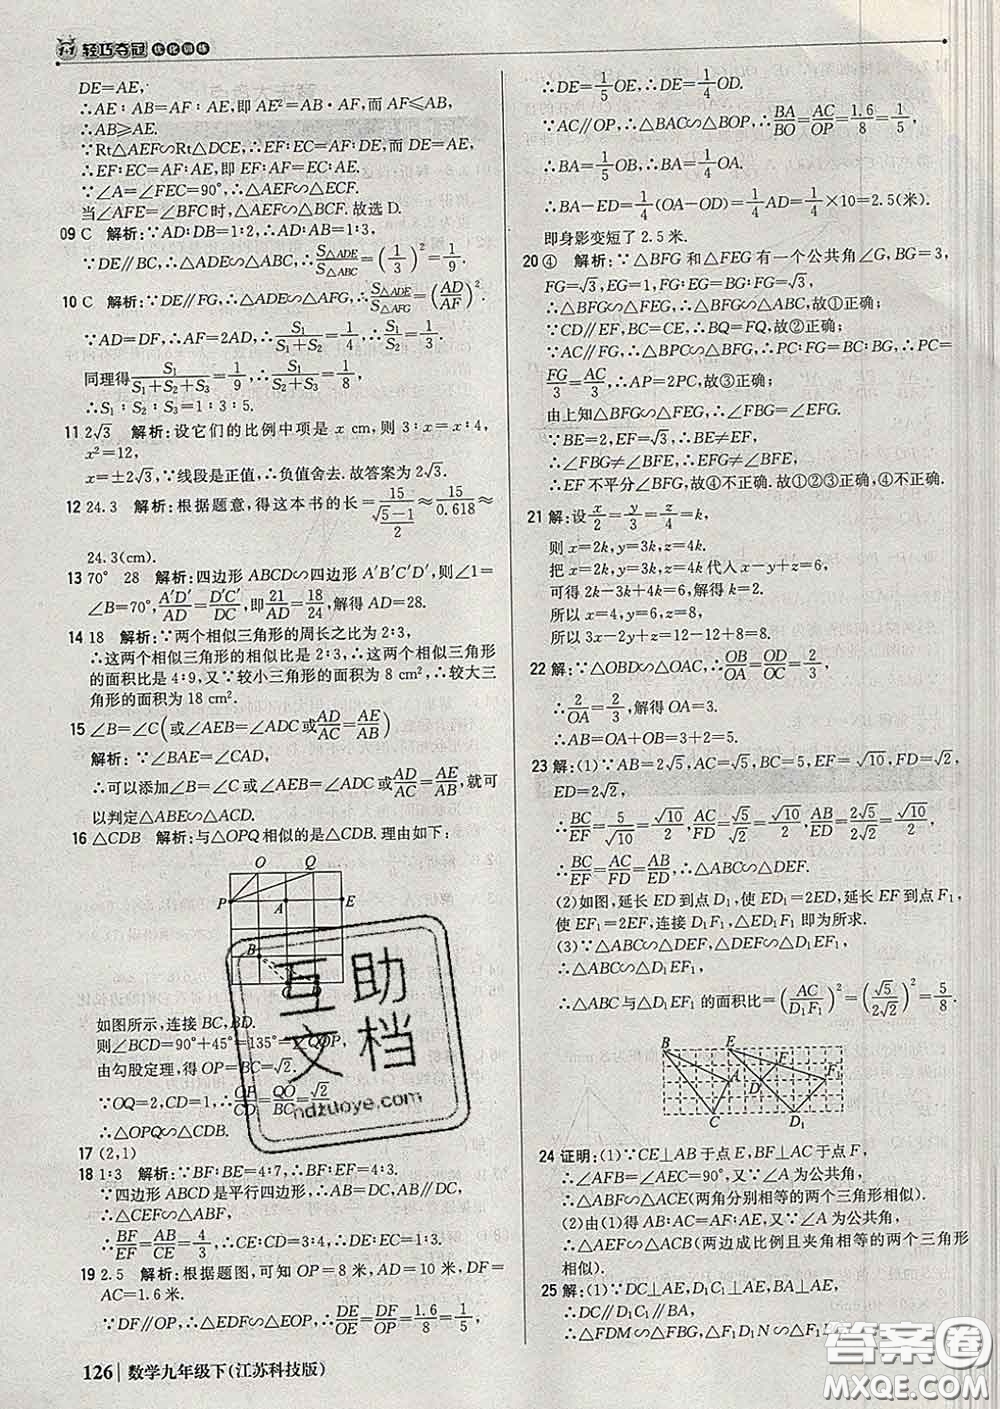 1+1 轻巧夺冠 优化训练
DE=AE,
∴AE∶AB=AF∶AE,即AE²=AB·AF,而AF≤AE,
∴AB≥AE.
∵Rt△AEF∽Rt△DCE,∴EF∶EC=AF∶DE,而DE=AE,
∴EF∶EC=AF∶AE,即EF∶AF=EC∶AE.
∵∠A=∠FEC=90°,∴△AEF∽△ECF.
当∠AFE=∠BFC时,△AEF∽△BCF.故选D.
09 C 解析:∵AD∶DB=1∶2,∴AD∶AB=1∶3,
∵DE∥BC,∴△ADE∽△ABC,∴S△ADE/S△ABC=(1/3)²=1/9.
10 C 解析:∵DE∥FG,∴△ADE∽△AFG,∴S△ADE/S△AFG=(AD/AF)².
∵AD=DF,∴AF=2AD,∴S₁/(S₁+S₂)=1/4,∴S₁/S₂=1/3.
同理得S₁/(S₁+S₂+S₃)=1/9,∴S₁/(S₂+S₃)=1/8,
∴S₁∶S₂∶S₃=1∶3∶5.
11 2√3 解析:设它们的比例中项是x cm,则3∶x=x∶4,
x²=12,
x=±2√3,∵线段是正值,∴负值舍去.故答案为2√3.
12 24.3 解析:根据题意,得这本书的长=15/((√5-1)/2)≈15/0.618≈
24.3(cm).
13 70° 28 解析:四边形ABCD∽四边形A′B′C′D′,则∠1=
∠B=70°,A′D′/AD=D′C′/DC,即21/AD=18/24,解得AD=28.
14 18 解析:∵两个相似三角形的周长之比为2∶3,
∴这两个相似三角形的相似比是2∶3,∴这两个相似三角形
的面积比是4∶9,又∵较小三角形的面积为8 cm²,∴较大三
角形的面积为18 cm².
15 ∠B=∠C(或∠AEB=∠ADC或AD/AC=AE/AB)
解析:∵∠BAE=∠CAD,
∴可以添加∠B=∠C或∠AEB=∠ADC或AD/AC=AE/AB,就可
以判定△ABE∽△ACD.
16 △CDB 解析:与△OPQ相似的是△CDB.理由如下:
O Q
P A E
B
C D
如图所示,连接BC,BD.
则∠BCD=90°+45°=135°=∠QOP,
由勾股定理,得OP=BC=√2.
∵OQ=2,CD=1,∴OP/CD=QO/BC=√2/1
∴△OPQ∽△CDB.
17 (2,1)
18 1∶3 解析:∵BF∶BE=4∶7,∴BF∶EF=4∶3,
∵四边形ABCD是平行四边形,∴AB=DC,AB∥DC,
∴△CEF∽△ABF,
∴BF/EF=AB/CE=4/3,∴CE∶CD=3∶4,∴DE∶EC=1∶3.
19 2.5 解析:根据题图,可知OP=8米,AD=10米,DF=
AC=1.6米.
∵DF∥OP,∴△DEF∽△OEP,∴DE/OE=DF/OP=1.6/8=1/5,
∴DE=1/5OE,∴DE=1/4OD.
∵AC∥OP,∴△BAC∽△BOP,∴BA/BO=AC/OP=1.6/8=1/5,
∴BA=1/5OB,∴BA=1/4OA.
∴BA-ED=1/4(OA-OD)=1/4AD=1/4×10=2.5(米).
即身影变短了2.5米.
20 ④ 解析:∵△BFG和△FEG有一个公共角∠G,BG=3,
FG=√3,EG=1,FG∶BG=EG∶FG=√3∶3,
∴△BFG∽△FEG,∴△BFG∽△ABC,故①正确;
∵CD∥EF,BC=CE,∴BQ=FQ,故②正确;
∵AC∥FG,∴△BPC∽△BFG,∴PC∶FG=BC∶BG,∴PC=
FG/3=AC/3,∴AP=2PC,故③正确;
由上知△BFG∽△FEG,∴∠FBG=∠EFG.
∵BE=2,EF=√3,∴BE≠EF,
∴∠FBG≠∠BFE,∴∠EFG≠∠BFE,
∴EF不平分∠BFG,故④不正确.故①②③正确,④不正确.
21 解:设x/2=y/3=z/4=k,
则x=2k,y=3k,z=4k.
把x=2k,y=3k,z=4k代入x-y+z=6,
可得2k-3k+4k=6,解得k=2.
所以x=4,y=6,z=8.
所以3x-2y+z=12-12+8=8.
22 解:∵△OBD∽△OAC,∴OB/OA=OD/OC=2/3,
∴2/OA=2/3,解得OA=3.
∴AB=OA+OB=3+2=5.
23 解:(1)∵AB=2√5,AC=√5,BC=5,EF=√10,FD=√2,
ED=2√2,
∴BC/EF=5/√10=√10/2,AC/FD=√5/√2=√10/2,AB/ED=2√5/2√2=√10/2,
∴BC/EF=AC/FD=AB/ED,∴△ABC∽△DEF.
(2)如图,延长ED到点D₁,使ED₁=2ED,延长EF到点F₁,
使EF₁=2EF,连接D₁F₁,△ED₁F₁即为所求.
(3)∵△ABC∽△DEF,△DEF∽△D₁EF₁,
∴△ABC∽△D₁EF₁,
∴△ABC与△D₁EF₁的面积比=(AC/D₁F₁)²=(√5/2√2)²=5/8.
B E
F
A D F₁
C D₁
24 证明:(1)∵CE⊥AB于点E,BF⊥AC于点F,
∴∠AFB=∠AEC=90°,又∵∠A为公共角,
∴△ABF∽△ACE(两角分别相等的两个三角形相似).
(2)由(1)得AB∶AC=AF∶AE,又∵∠A为公共角,
∴△AEF∽△ACB(两边成比例且夹角相等的两个三角形
相似).
25 解:(1)∵DC⊥AE,D₁C₁⊥AE,BA⊥AE,
∴DC∥D₁C₁∥BA,
∴△FDM∽△FBG,△F₁D₁N∽△F₁BG.
126 数学九年级下(江苏科技版)
互助
文档
hdzuoye.com
答案圈
MXQE.COM